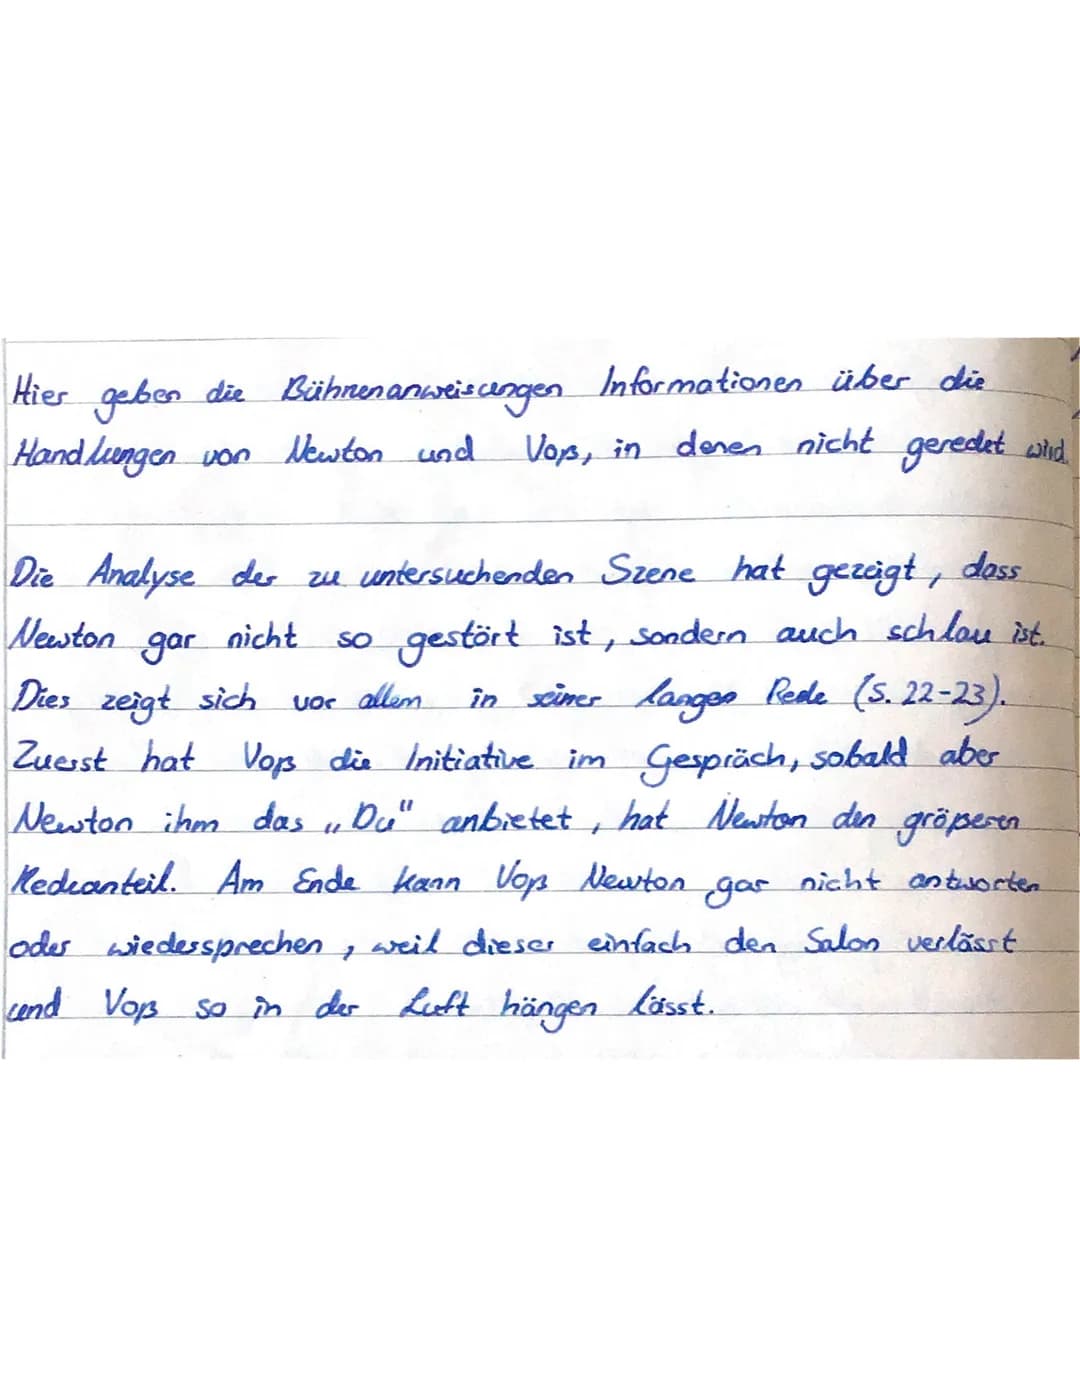 Hier geben die Bühnenanweisungen Informationen über die
Handlungen von Newton und Voß, in denen nicht geredet wird
Die Analyse der zu untersuchenden Szene hat gezeigt, dass
Newton gar nicht so gestört ist, sondern auch schlau ist.
Dies zeigt sich vor allem in seiner langen Rede (S. 22-23).
Zuerst hat Voß die Initiative im Gespräch, sobald aber
Newton ihm das „Du" anbietet, hat Newton den größeren
Redeanteil. Am Ende kann Voß Newton gar nicht antworten
oder wiedersprechen, weil dieser einfach den Salon verlässt
und Voß so in der Luft hängen lässt.